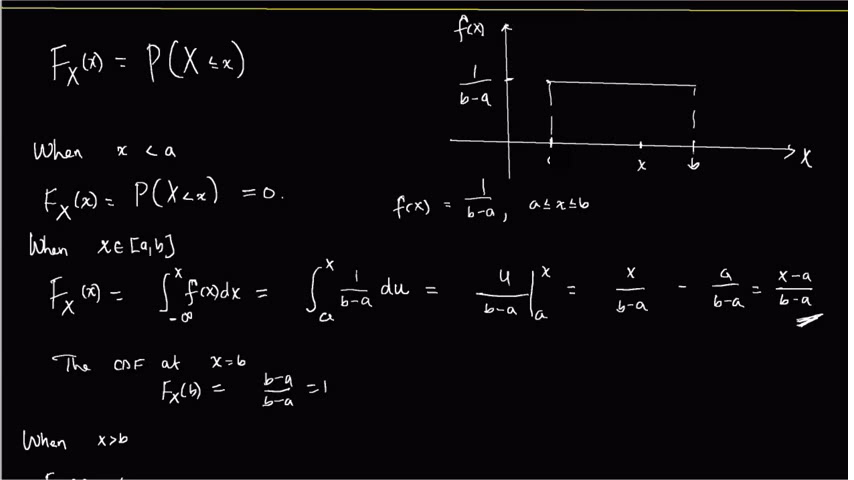 F_X(x) = P(X ≤ x)
f(x)
1/(b-a)
x b X
f(x) = 1/(b-a), a ≤ x ≤ b
When x < a
F_X(x) = P(X < x) = 0.
When x ∈ [a,b]
F_X(x) = ∫_{-∞}^{x} f(x)dx = ∫_{a}^{x} 1/(b-a) du = u/(b-a) |_{a}^{x} = x/(b-a) - a/(b-a) = (x-a)/(b-a)
The CDF at x=b
F_X(b) = (b-a)/(b-a) = 1
When x>b